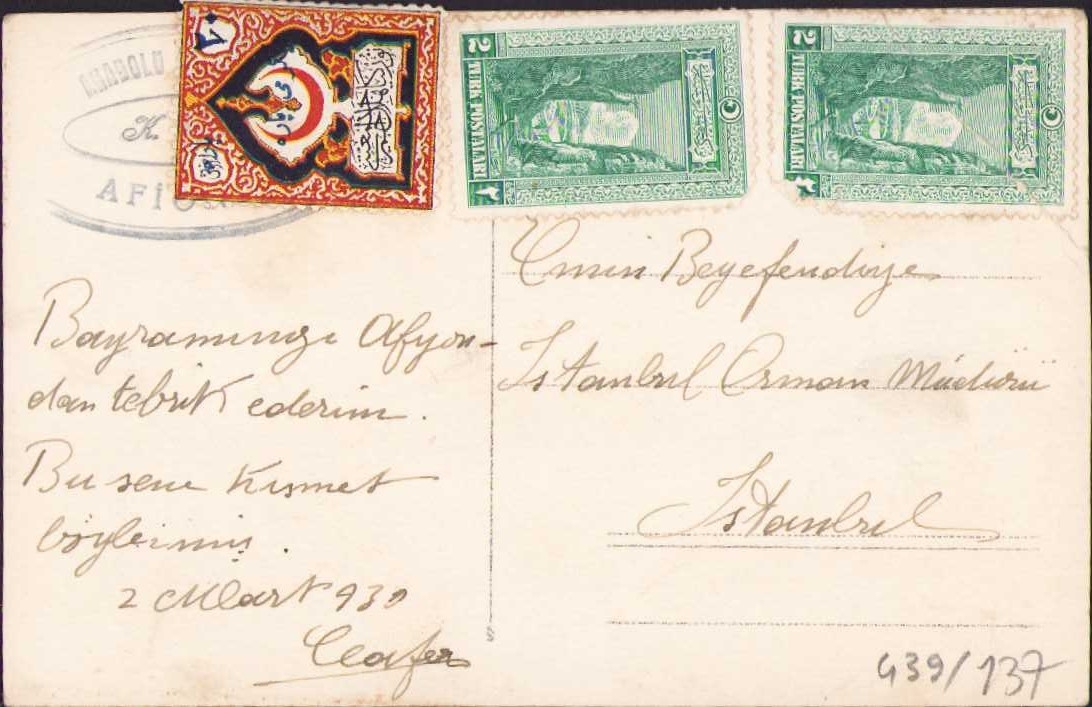 K.
AFİO
2 TURK POSTALARI ٢
2 TURK POSTALARI ٢
Emin Beyefendiye
İstanbul Orman Müdürü
İstanbul
Bayramınızı Afyon-
dan tebrik ederim.
Bu sene Kısmet
böyleimiş.
2 Mart 930
Cafer
439/137